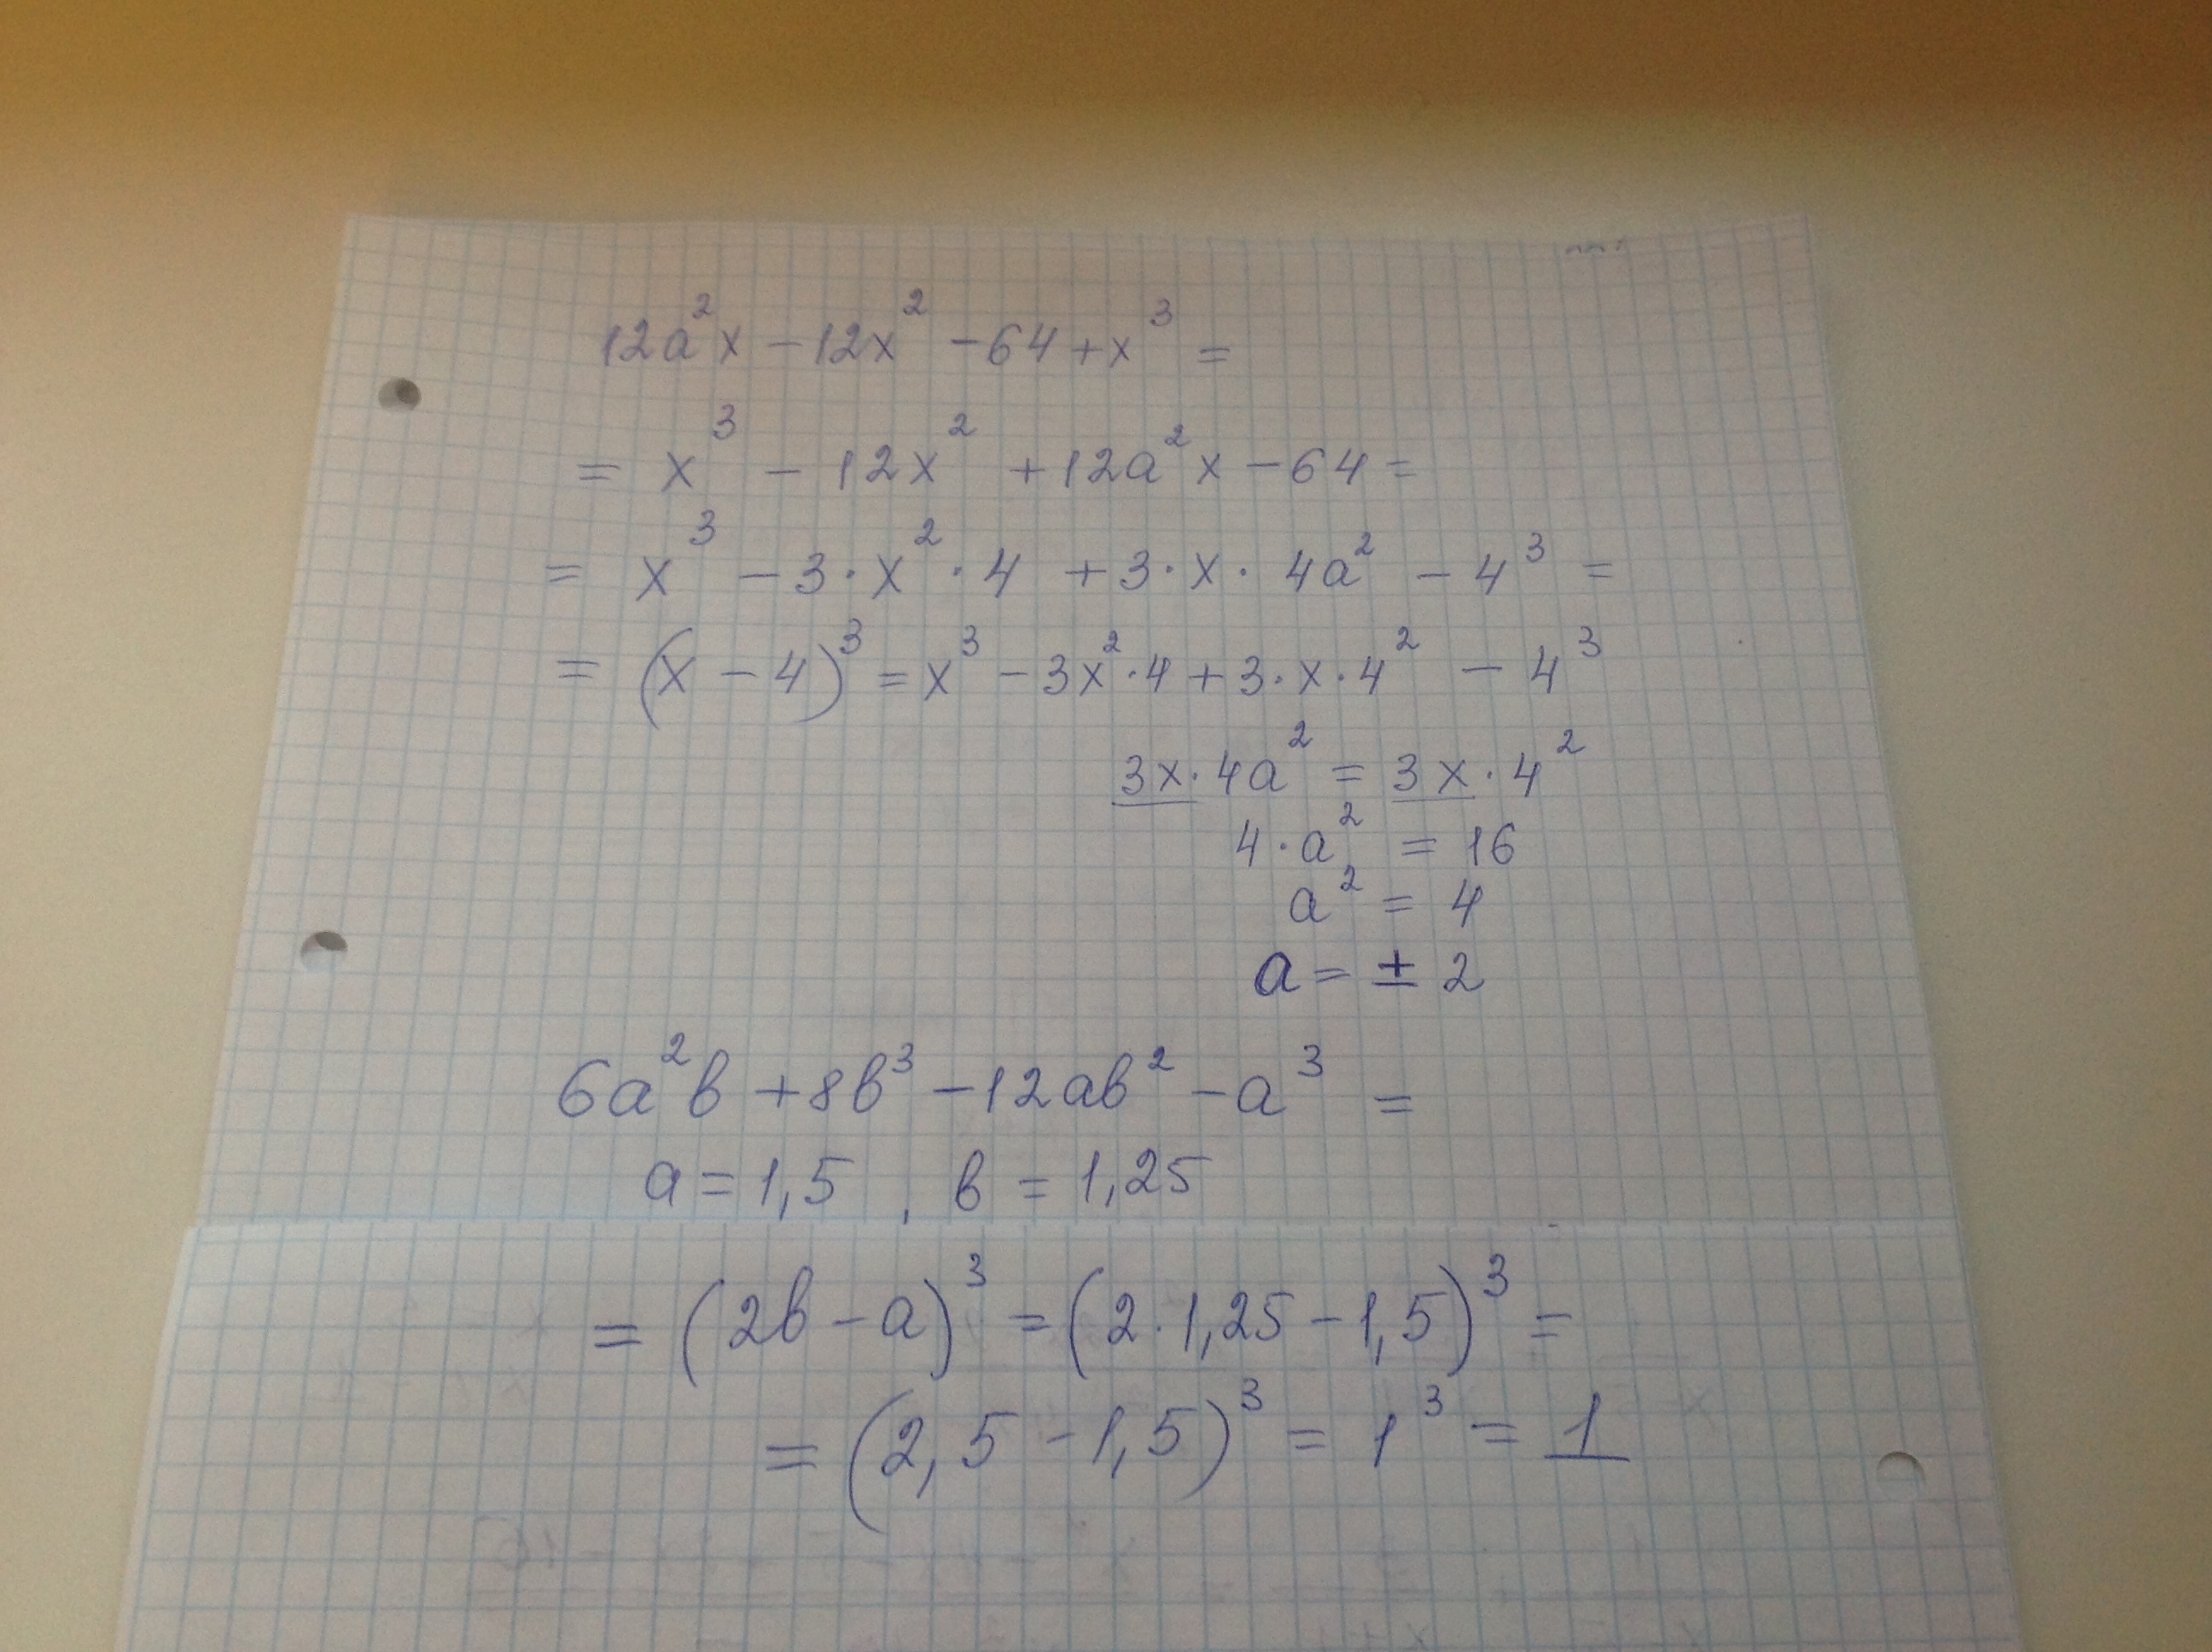 12a²x − 12x² − 64 + x³ =
= x³ − 12x² + 12a²x − 64 =
= x³ − 3·x²·4 + 3·x·4a² − 4³ =
= (x − 4)³ = x³ − 3x²·4 + 3·x·4² − 4³
3x·4a² = 3x·4²
4·a² = 16
a² = 4
a = ± 2
6a²b + 8b³ − 12ab² − a³ =
a = 1,5 , b = 1,25
= (2b − a)³ = (2·1,25 − 1,5)³ =
= (2,5 − 1,5)³ = 1³ = 1